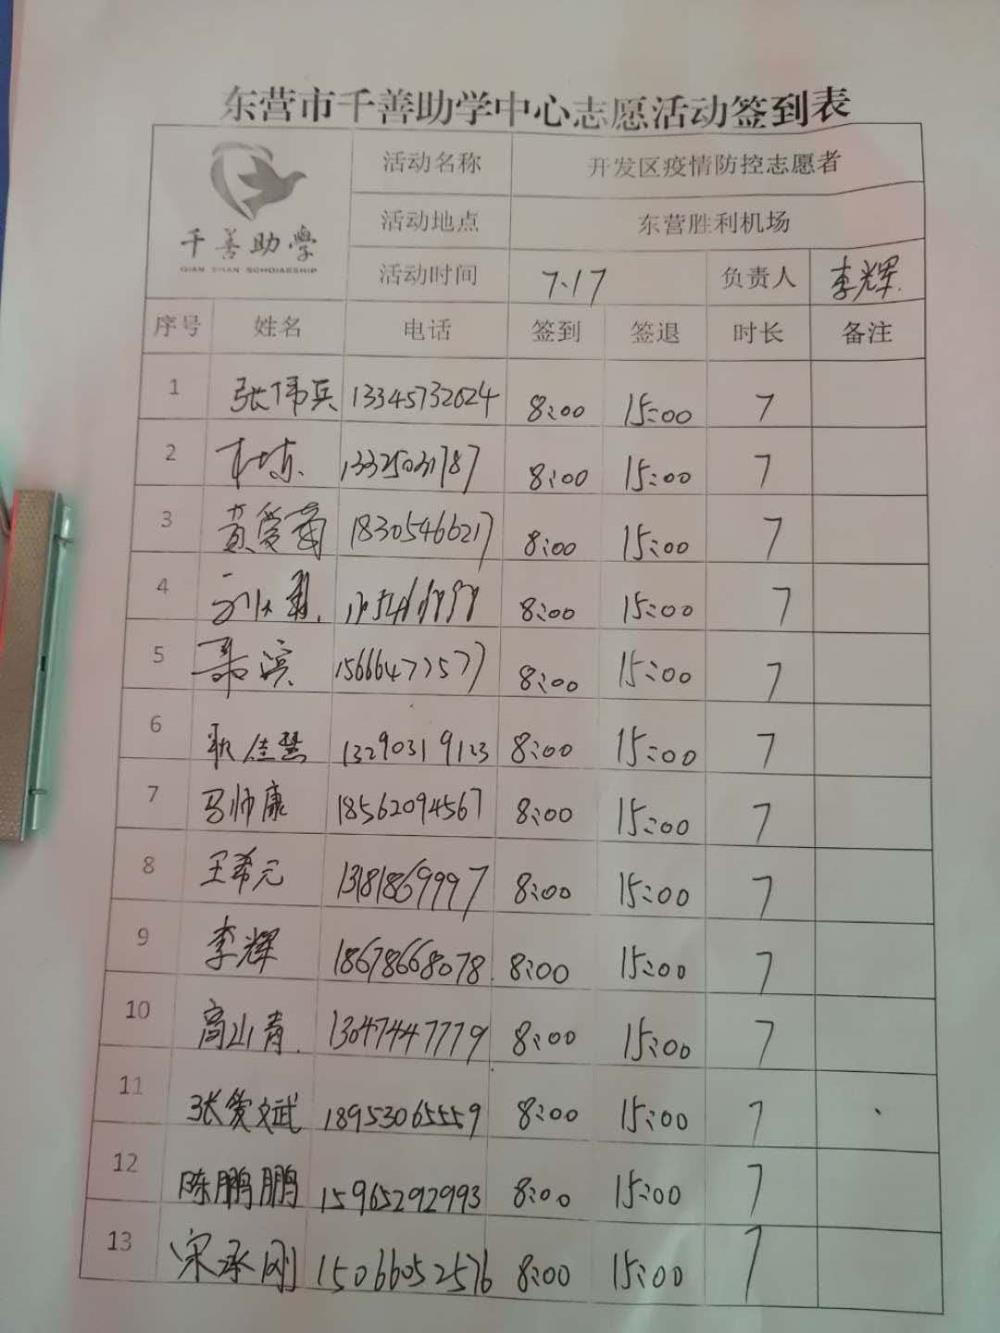 东营市千善助学中心志愿活动签到表
千善助学
QIAN SHAN SCHOLARSHIP
活动名称 开发区疫情防控志愿者
活动地点 东营胜利机场
活动时间 7.17 负责人 李辉
序号 姓名 电话 签到 签退 时长 备注
1 张伟兵 13345732624 8:00 15:00 7
2 13325031787 8:00 15:00 7
3 黄爱菊 18305466217 8:00 15:00 7
4 8:00 15:00 7
5 聂滨 15666477577 8:00 15:00 7
6 耿佳慧 13290319123 8:00 15:00 7
7 马帅康 18562094567 8:00 15:00 7
8 王希元 13181869997 8:00 15:00 7
9 李辉 18678668078 8:00 15:00 7
10 高山青 13047447779 8:00 15:00 7
11 张爱斌 18953065559 8:00 15:00 7
12 陈鹏鹏 15965292993 8:00 15:00 7
13 宋承刚 15066052576 8:00 15:00 7